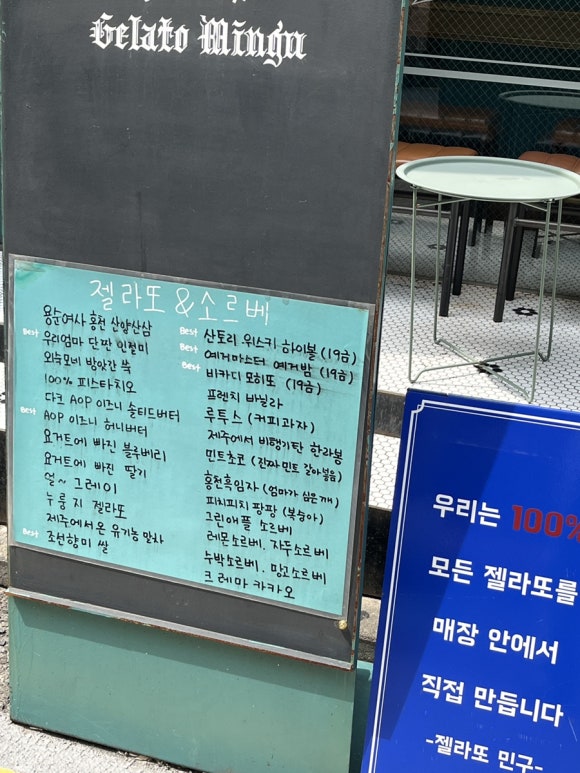 Gelato Mingu
젤라또 & 소르베
용순여사 홍천 산양산삼
Best 우리엄마 단짠 인절미
외숙모네 방앗간 쑥
100% 피스타치오
다크 AOP 이즈니 솔티드버터
Best AOP 이즈니 허니버터
요거트에 빠진 블루베리
요거트에 빠진 딸기
얼~ 그레이
누룽지 젤라또
제주에서온 유기농 말차
Best 조선향미 쌀
Best 산토리 위스키 하이볼 (19금)
Best 예거마스터 예거밤 (19금)
Best 바카디 모히또 (19금)
프렌치 바닐라
로투스 (커피과자)
제주에서 비행기탄 한라봉
민트초코 (진짜 민트 갈아넣음)
홍천흑임자 (엄마가 심은깨)
피치피치 팡팡 (복숭아)
그린애플 소르베
레몬소르베. 자두소르베
수박소르베. 망고소르베
크레마 카카오
우리는 100%
모든 젤라또를
매장 안에서
직접 만듭니다
-젤라또 민구-